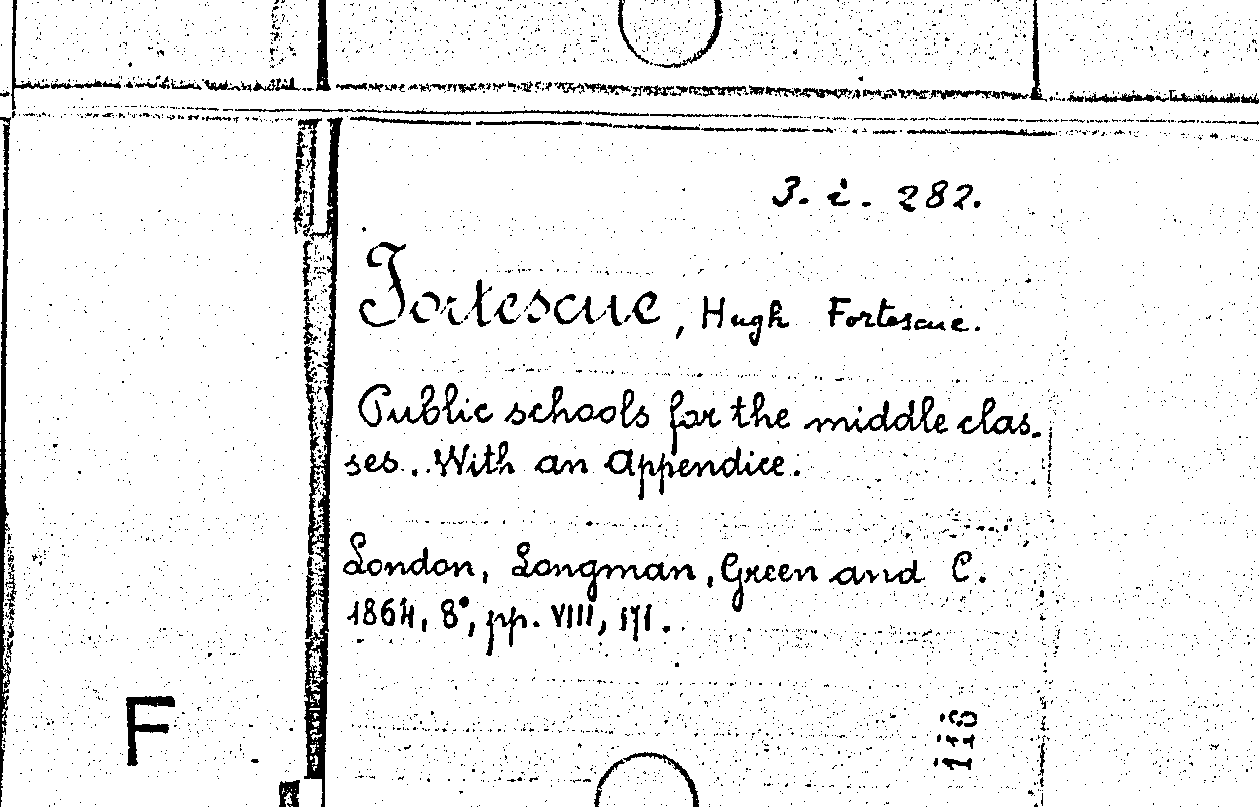 3. i. 282.
Fortescue, Hugh Fortescue.
Public schools for the middle clas-
ses.. With an Appendice.
London, Longman, Green and C.
1864, 8°, pp. VIII, 171.
F
116